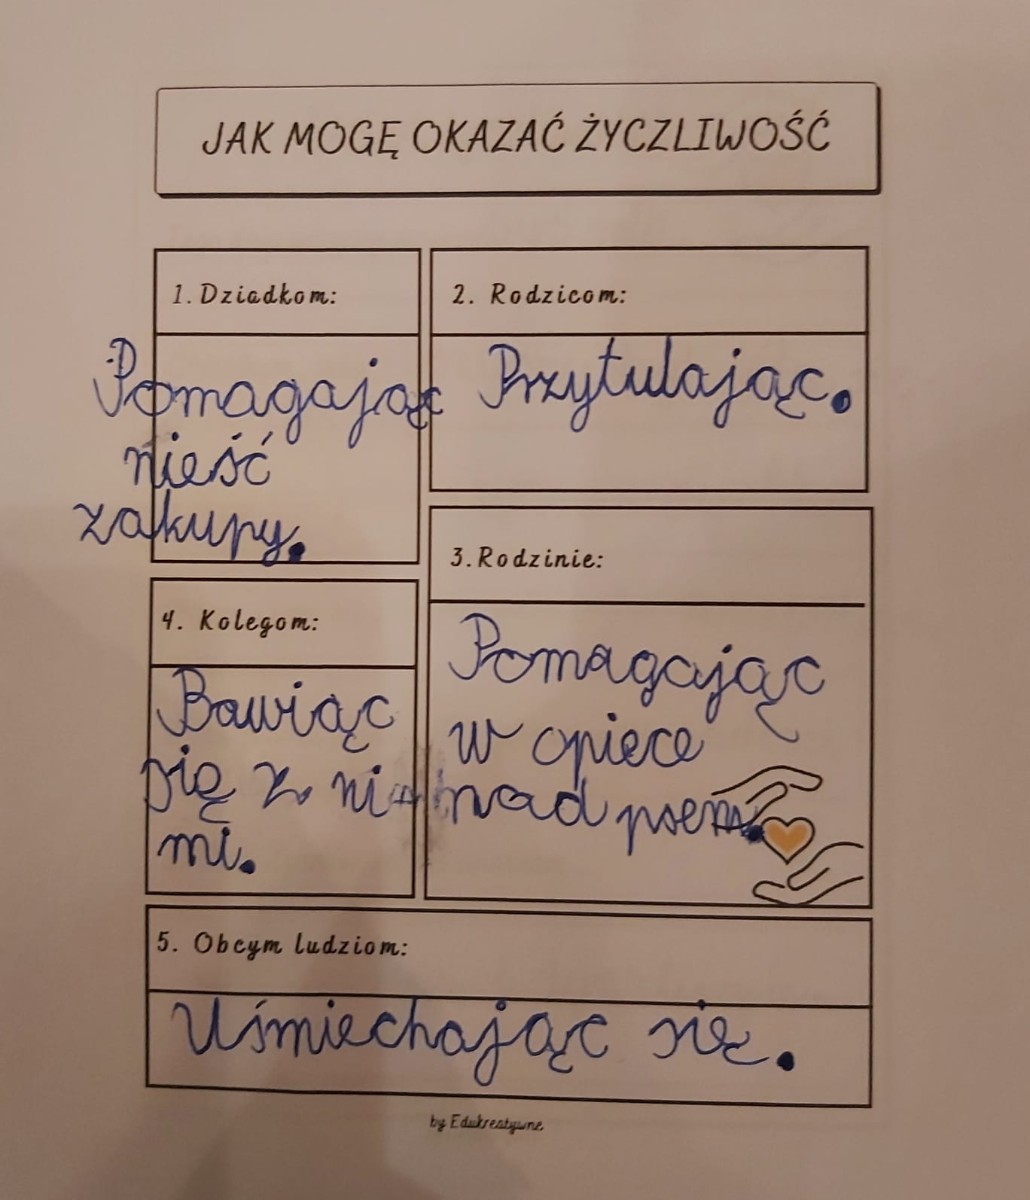 JAK MOGĘ OKAZAĆ ŻYCZLIWOŚĆ
1. Dziadkom:
Pomagając
nieść
zakupy.
2. Rodzicom:
Przytulając.
3. Rodzinie:
Pomagając
w opiece
nad psem.
4. Kolegom:
Bawiąc
się z ni-
mi.
5. Obcym ludziom:
Uśmiechając się.
by Edukreatywne